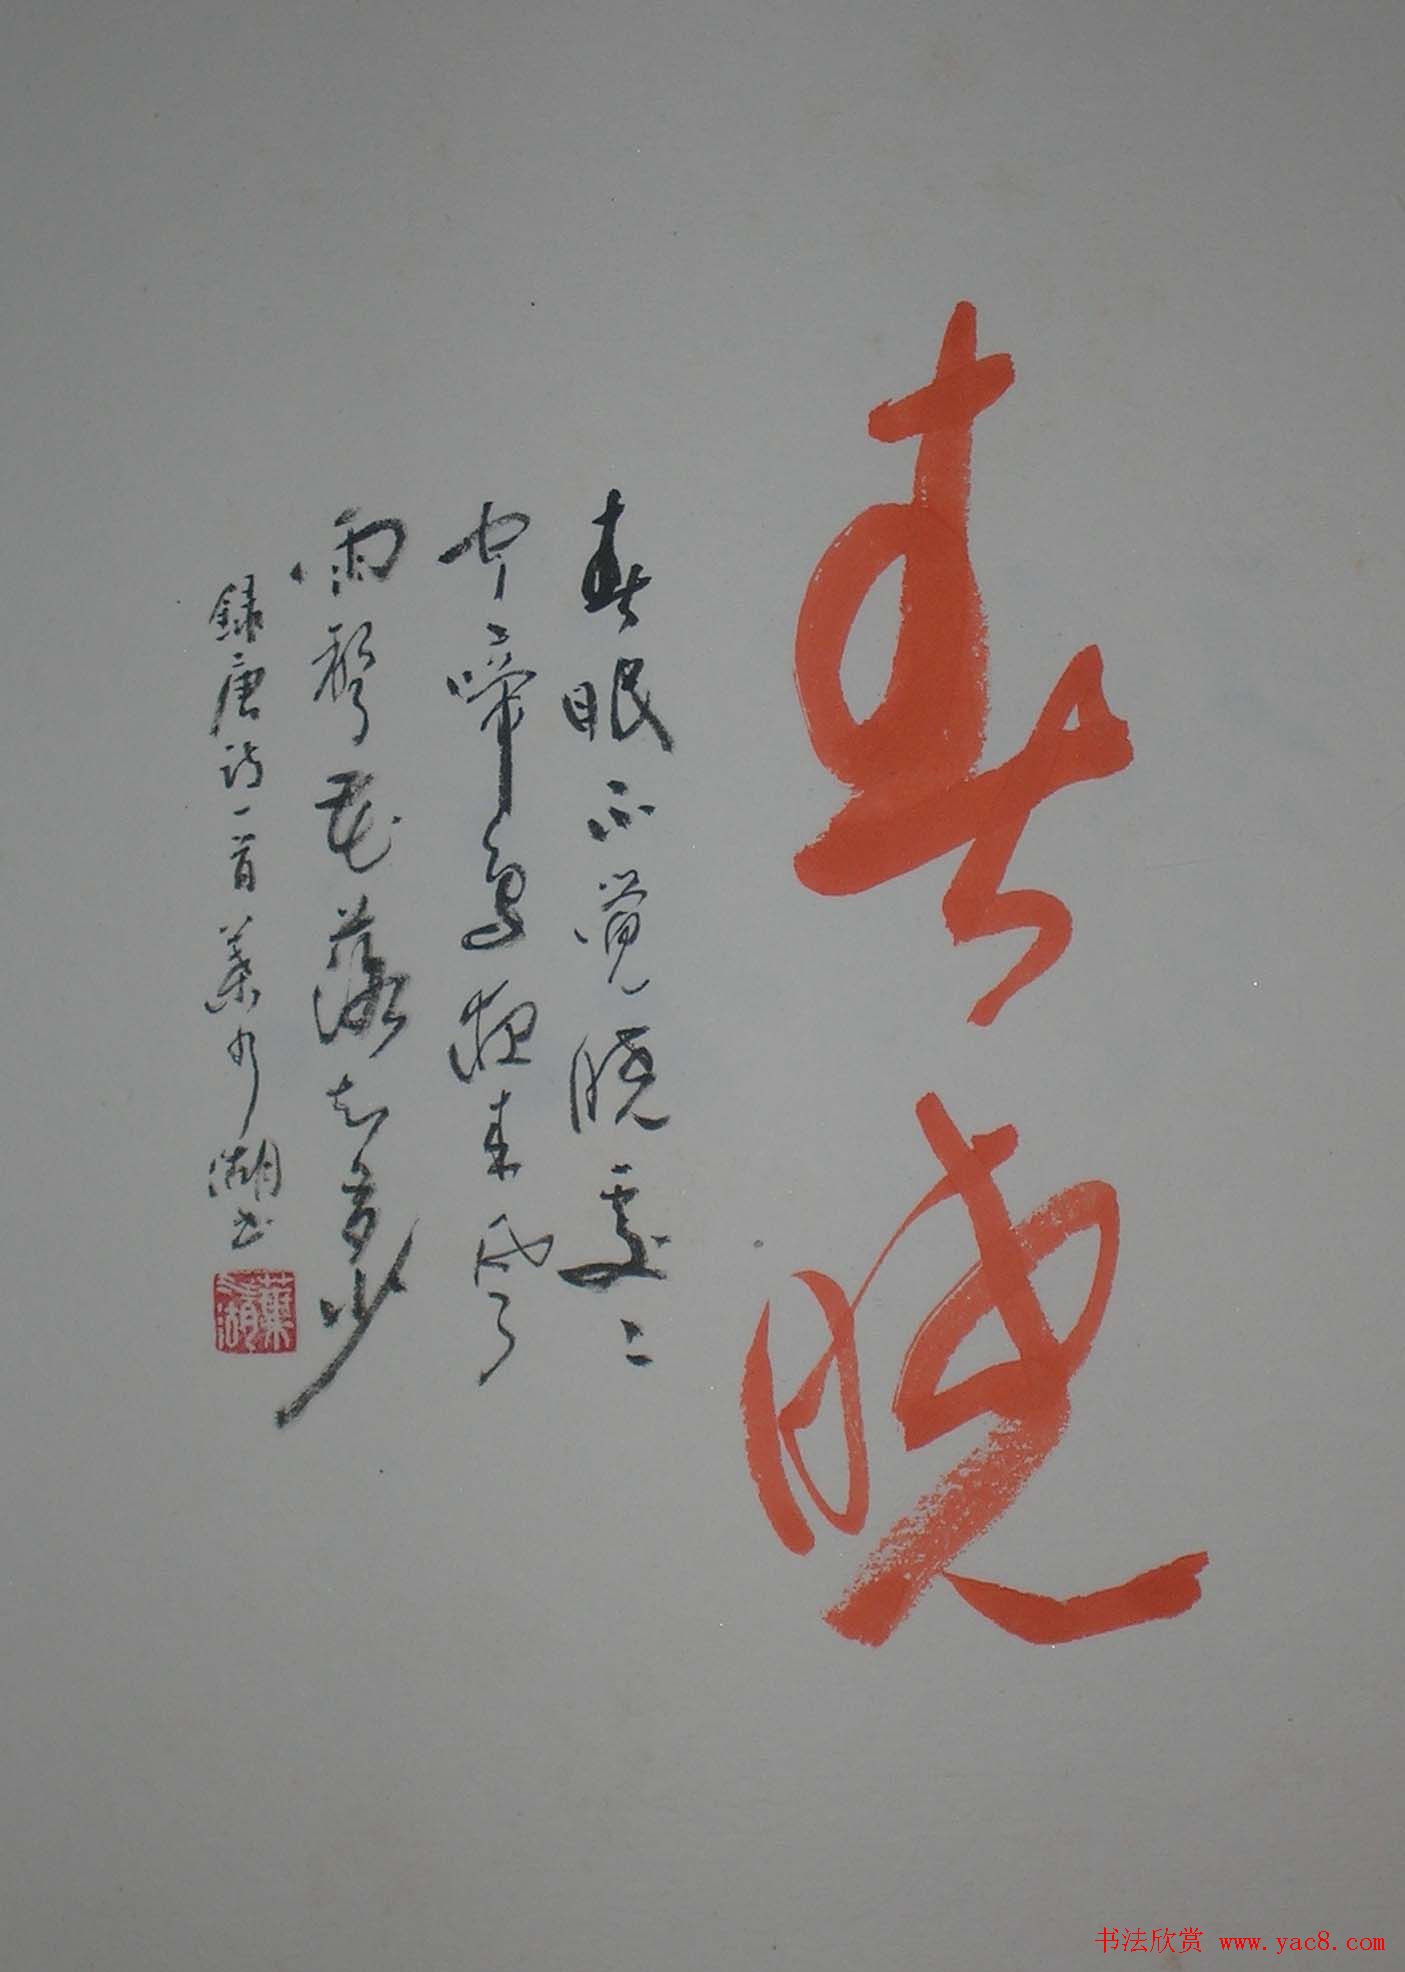 春晓
春眠不覺晓處〻
闻啼鸟夜来风
雨聲花落知多少
録唐诗一首葉湖书
葉湖
书法欣赏 www.yac8.com